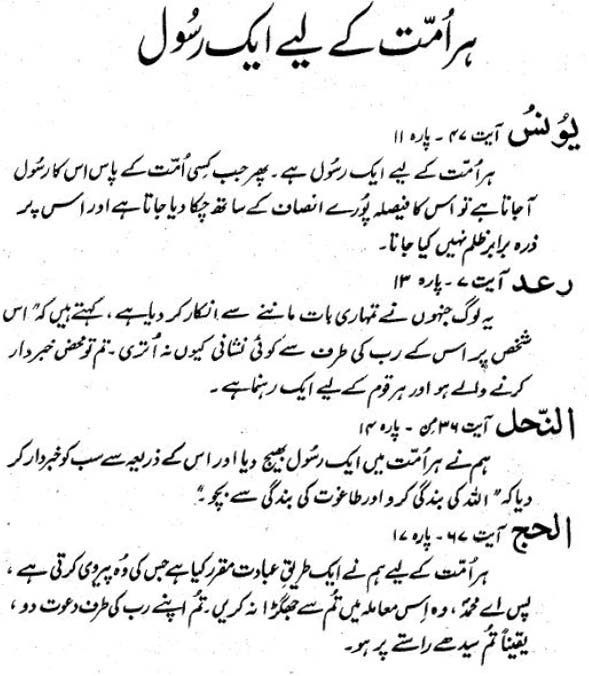 ہر اُمّت کے لیے ایک رسُول
یُونسُ آیت ۴۷ - پارہ ۱۱
ہر اُمّت کے لیے ایک رسُول ہے۔ پھر جب کسی اُمّت کے پاس اس کا رسُول
آجاتا ہے تو اُس کا فیصلہ پُورے انصاف کے ساتھ چکا دیا جاتا ہے اور اس پر
ذرہ برابر ظلم نہیں کیا جاتا۔
رعد آیت ۷ - پارہ ۱۳
یہ لوگ جنہوں نے تمہاری بات ماننے سے انکار کر دیا ہے، کہتے ہیں کہ "اس
شخص پر اس کے رب کی طرف سے کوئی نشانی کیوں نہ اُتری۔ تم تو محض خبردار
کرنے والے ہو اور ہر قوم کے لیے ایک رہنما ہے۔
النّحل آیت ۳۶ مِن - پارہ ۱۴
ہم نے ہر اُمّت میں ایک رسُول بھیج دیا اور اس کے ذریعہ سے سب کو خبردار کر
دیا کہ "اللہ کی بندگی کرو اور طاغوت کی بندگی سے بچو۔"
الحج آیت ۶۷ - پارہ ۱۷
ہر اُمّت کے لیے ہم نے ایک طریقِ عبادت مقرر کیا ہے جس کی وُہ پیروی کرتی ہے،
پس اے محمدؐ، وہ اِس معاملہ میں تُم سے جھگڑا نہ کریں۔ تُم اپنے رب کی طرف دعوت دو،
یقیناً تُم سیدھے راستے پر ہو۔